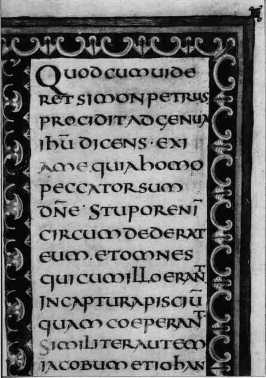 QUOD CUM UIDE
RET SIMON PETRUS
PROCIDIT AD GENUA
IHŪ DICENS · EXI
A ME · QUIA HOMO
PECCATOR SUM
DÑE · STUPOR ENĪ
CIRCUMDEDERAT
EUM · ET OMNES
QUI CUM ILLO ERANT
IN CAPTURA PISCIŪ
QUAM COEPERANT
SIMILITER AUTEM
IACOBUM ET IOHAN